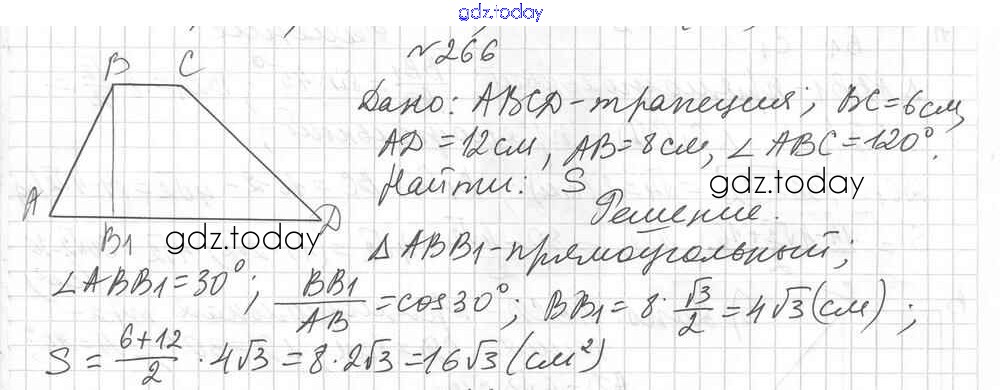 gdz.today
№266
B C
Дано: ABCD-трапеция; BC=6см,
AD=12см, AB=8см, ∠ABC=120°.
Найти: S
gdz.today
Решение.
A D
B1
gdz.today
ΔABB1-прямоугольный;
∠ABB1=30°; BB1/AB=cos30°; BB1=8·√3/2=4√3(см);
S=(6+12)/2·4√3=8·2√3=16√3(см²)